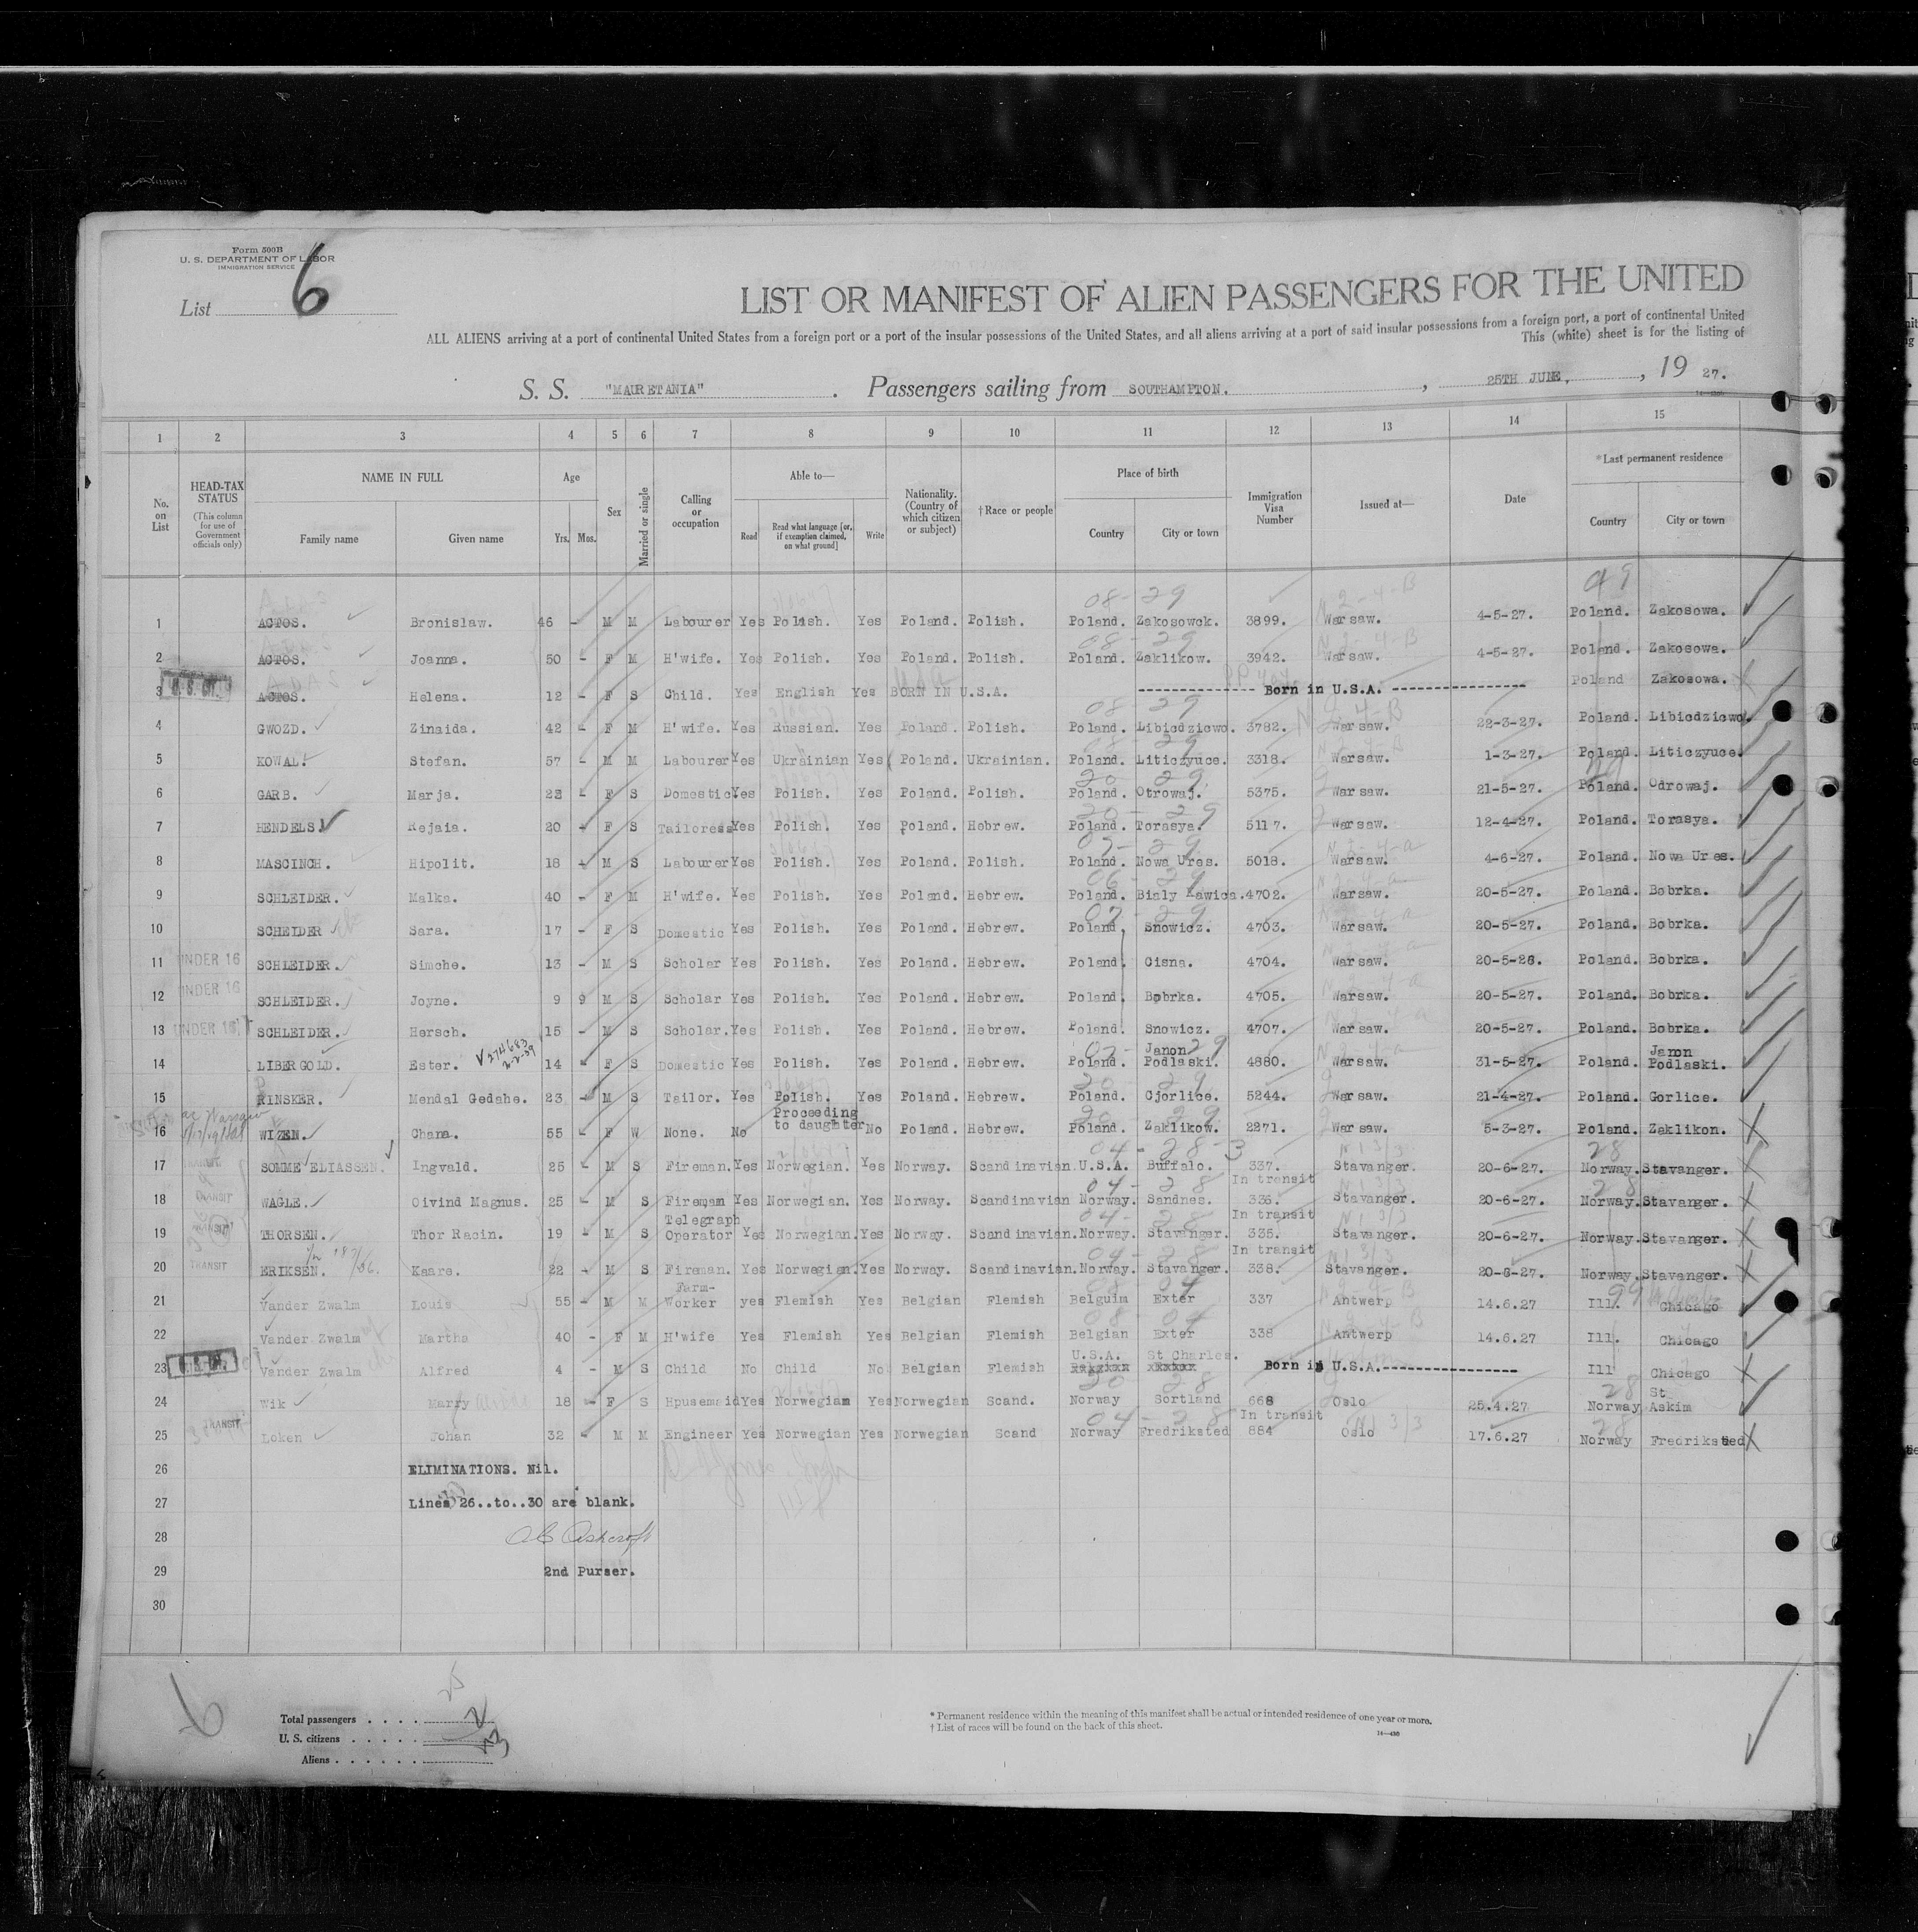 Form 500B
U. S. DEPARTMENT OF LABOR
IMMIGRATION SERVICE
List 6
LIST OR MANIFEST OF ALIEN PASSENGERS FOR THE UNITED
ALL ALIENS arriving at a port of continental United States from a foreign port or a port of the insular possessions of the United States, and all aliens arriving at a port of said insular possessions from a foreign port, a port of continental United
This (white) sheet is for the listing of
S. S. "MAURETANIA". Passengers sailing from SOUTHAMPTON. , 25TH JUNE, , 19 27.
1 2 3 4 5 6 7 8 9 10 11 12 13 14 15
No. on List
HEAD-TAX STATUS (This column for use of Government officials only)
NAME IN FULL Family name Given name
Age Yrs. Mos.
Sex
Married or single
Calling or occupation
Able to— Read Read what language [or, if exemption claimed, on what ground] Write
Nationality. (Country of which citizen or subject)
†Race or people
Place of birth Country City or town
Immigration Visa Number
Issued at—
Date
*Last permanent residence Country City or town
1 ACTOS. Bronislaw. 46 - M M Labourer Yes Polish. Yes Poland. Polish. Poland. Zakosowck. 3899. Warsaw. 4-5-27. Poland. Zakosowa.
2 ACTOS. Joanna. 50 - F M H'wife. Yes Polish. Yes Poland. Polish. Poland. Zaklikow. 3942. Warsaw. 4-5-27. Poland. Zakosowa.
3 ACTOS. Helena. 12 - F S Child. Yes English Yes BORN IN U.S.A. ------------- Born in U.S.A. --------------- Poland Zakosowa.
4 GWOZD. Zinaida. 42 - F M H'wife. Yes Russian. Yes Poland. Polish. Poland. Libiodziowo. 3782. Warsaw. 22-3-27. Poland. Libiodziowo.
5 KOWAL. Stefan. 57 - M M Labourer Yes Ukrainian Yes Poland. Ukrainian. Poland. Liticzyuce. 3318. Warsaw. 1-3-27. Poland. Liticzyuce.
6 GARB. Marja. 23 - F S Domestic. Yes Polish. Yes Poland. Polish. Poland. Otrowaj. 5375. Warsaw. 21-5-27. Poland. Odrowaj.
7 HENDELS. Rejaia. 20 - F S Tailoress Yes Polish. Yes Poland. Hebrew. Poland. Torasya. 5117. Warsaw. 12-4-27. Poland. Torasya.
8 MASCINCH. Hipolit. 18 - M S Labourer Yes Polish. Yes Poland. Polish. Poland. Nowa Ures. 5018. Warsaw. 4-6-27. Poland. Nowa Ures.
9 SCHLEIDER. Malka. 40 - F M H'wife. Yes Polish. Yes Poland. Hebrew. Poland. Bialy Kawica. 4702. Warsaw. 20-5-27. Poland. Bobrka.
10 SCHEIDER Sara. 17 - F S Domestic Yes Polish. Yes Poland. Hebrew. Poland. Snowicz. 4703. Warsaw. 20-5-27. Poland. Bobrka.
11 UNDER 16 SCHLEIDER. Simche. 13 - M S Scholar Yes Polish. Yes Poland. Hebrew. Poland. Cisna. 4704. Warsaw. 20-5-26. Poland. Bobrka.
12 UNDER 16 SCHLEIDER. Joyne. 9 9 M S Scholar Yes Polish. Yes Poland. Hebrew. Poland. Bobrka. 4705. Warsaw. 20-5-27. Poland. Bobrka.
13 UNDER 16 SCHLEIDER. Hersch. 15 - M S Scholar. Yes Polish. Yes Poland. Hebrew. Poland. Snowicz. 4707. Warsaw. 20-5-27. Poland. Bobrka.
14 LIBERGOLD. Ester. V 274683 2-2-39 14 - F S Domestic Yes Polish. Yes Poland. Hebrew. Poland. Janon Podlaski. 4880. Warsaw. 31-5-27. Poland. Janon Podlaski.
15 RINSKER. Mendal Gedahe. 23 - M S Tailor. Yes Polish. Yes Poland. Hebrew. Poland. Cjorlice. 5244. Warsaw. 21-4-27. Poland. Gorlice.
16 WIZEN. Chana. 55 - F W None. No Proceeding to daughter No Poland. Hebrew. Poland. Zaklikow. 2271. Warsaw. 5-3-27. Poland. Zaklikon.
17 TRANSIT SOMME ELIASSEN. Ingvald. 25 - M S Fireman. Yes Norwegian. Yes Norway. Scandinavian. U.S.A. Buffalo. 337. In transit Stavanger. 20-6-27. Norway. Stavanger.
18 TRANSIT WAGLE. Oivind Magnus. 25 - M S Fireman Yes Norwegian. Yes Norway. Scandinavian Norway. Sandnes. 336. In transit Stavanger. 20-6-27. Norway. Stavanger.
19 TRANSIT THORSEN. Thor Racin. 19 - M S Telegraph Operator Yes Norwegian. Yes Norway. Scandinavian. Norway. Stavanger. 335. In transit Stavanger. 20-6-27. Norway. Stavanger.
20 TRANSIT ERIKSEN. Kaare. 22 - M S Fireman. Yes Norwegian. Yes Norway. Scandinavian. Norway. Stavanger. 338. Stavanger. 20-6-27. Norway. Stavanger.
21 Vander Zwalm Louis 55 - M M Farm-Worker yes Flemish Yes Belgian Flemish Belguim Exter 337 Antwerp 14.6.27 Ill. Chicago
22 Vander Zwalm Martha 40 - F M H'wife Yes Flemish Yes Belgian Flemish Belgian Exter 338 Antwerp 14.6.27 Ill. Chicago
23 Vander Zwalm Alfred 4 - M S Child No Child No Belgian Flemish U.S.A. St Charles. Born in U.S.A.--------------- Ill Chicago
24 Wik Marry 18 - F S Hpusemaid Yes Norwegian Yes Norwegian Scand. Norway Sortland 668 Oslo 25.4.27 Norway St Askim
25 TRANSIT Loken Johan 32 - M M Engineer Yes Norwegian Yes Norwegian Scand Norway Fredriksted In transit 884 Oslo 17.6.27 Norway Fredriksted
26 ELIMINATIONS. Nil.
27 Lines 26..to..30 are blank.
28 Ashcroft
29 2nd Purser.
30
6
Total passengers . . . . 25
U. S. citizens . . . . . 2
Aliens . . . . . . 23
* Permanent residence within the meaning of this manifest shall be actual or intended residence of one year or more.
† List of races will be found on the back of this sheet.